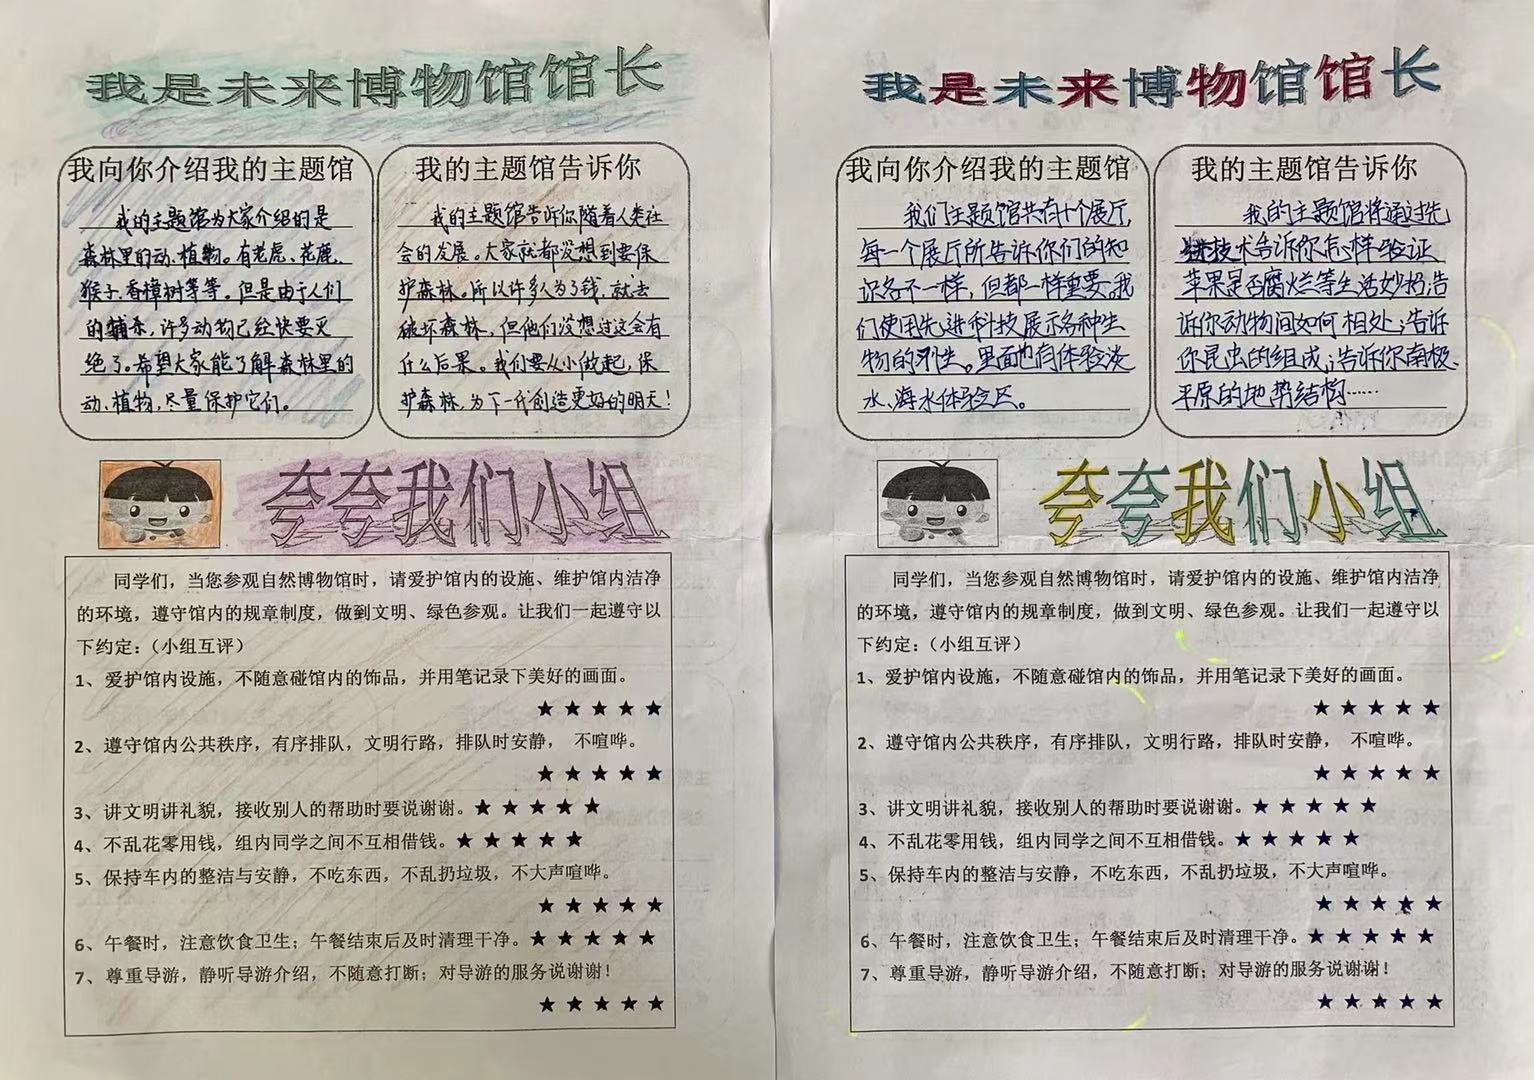 我是未来博物馆馆长
我向你介绍我的主题馆
我的主题馆为大家介绍的是
森林里的动、植物。有老虎、花鹿、
猴子、香樟树等等。但是由于人们
的捕杀，许多动物已经快要灭
绝了。希望大家能了解森林里的
动、植物，尽量保护它们。
我的主题馆告诉你
我的主题馆告诉你随着人类社
会的发展。大家就都没想到要保
护森林。所以许多人为了钱，就去
破坏森林，但他们没想过这会有
什么后果。我们要从小做起，保
护森林，为下一代创造更好的明天！
夸夸我们小组
同学们，当您参观自然博物馆时，请爱护馆内的设施、维护馆内洁净
的环境，遵守馆内的规章制度，做到文明、绿色参观。让我们一起遵守以
下约定：（小组互评）
1、爱护馆内设施，不随意碰馆内的饰品，并用笔记录下美好的画面。
★★★★★
2、遵守馆内公共秩序，有序排队，文明行路，排队时安静， 不喧哗。
★★★★★
3、讲文明讲礼貌，接收别人的帮助时要说谢谢。★★★★★
4、不乱花零用钱，组内同学之间不互相借钱。★★★★★
5、保持车内的整洁与安静，不吃东西，不乱扔垃圾，不大声喧哗。
★★★★★
6、午餐时，注意饮食卫生；午餐结束后及时清理干净。★★★★★
7、尊重导游，静听导游介绍，不随意打断；对导游的服务说谢谢！
★★★★★
我是未来博物馆馆长
我向你介绍我的主题馆
我们主题馆共有十个展厅，
每一个展厅所告诉你们的知
识各不一样，但都一样重要。我
们使用先进科技展示各种生
物的习性。里面也有体验淡
水、海水体验区。
我的主题馆告诉你
我的主题馆将通过先
进技术告诉你怎样验证
苹果是否腐烂等生活妙招；告
诉你动物间如何相处；告诉
你昆虫的组成；告诉你南极、
平原的地势结构……
夸夸我们小组
同学们，当您参观自然博物馆时，请爱护馆内的设施、维护馆内洁净
的环境，遵守馆内的规章制度，做到文明、绿色参观。让我们一起遵守以
下约定：（小组互评）
1、爱护馆内设施，不随意碰馆内的饰品，并用笔记录下美好的画面。
★★★★★
2、遵守馆内公共秩序，有序排队，文明行路，排队时安静， 不喧哗。
★★★★★
3、讲文明讲礼貌，接收别人的帮助时要说谢谢。★★★★★
4、不乱花零用钱，组内同学之间不互相借钱。★★★★★
5、保持车内的整洁与安静，不吃东西，不乱扔垃圾，不大声喧哗。
★★★★★
6、午餐时，注意饮食卫生；午餐结束后及时清理干净。★★★★★
7、尊重导游，静听导游介绍，不随意打断；对导游的服务说谢谢！
★★★★★